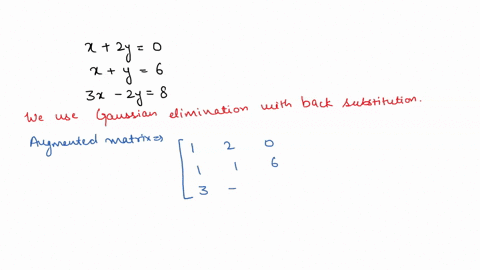 x + 2y = 0
x + y = 6
3x - 2y = 8
We use Gaussian elimination with back substitution.
Augmented matrix ⇒ [ 1 2 0
1 1 6
3 -